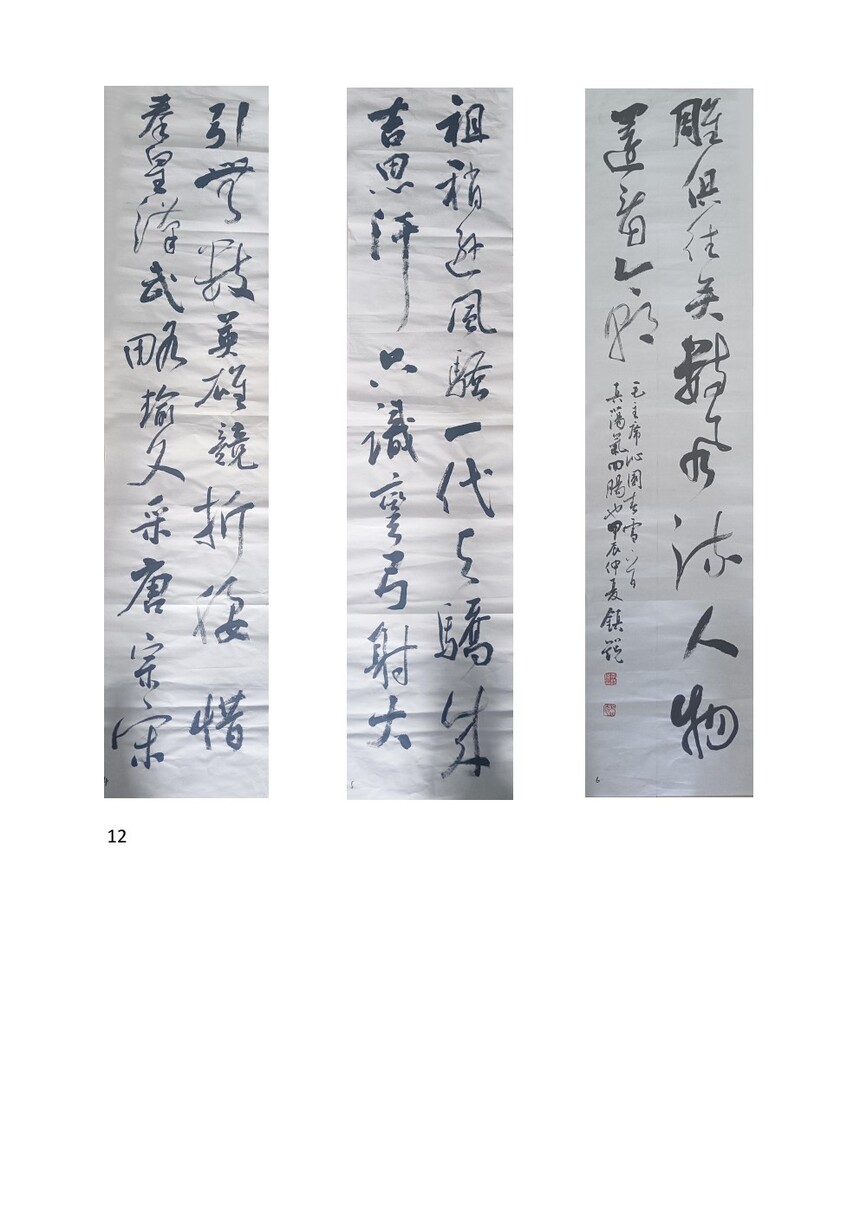 引無數英雄競折腰惜
秦皇漢武略輸文采唐宗宋
4
祖稍遜風騷一代天驕成
吉思汗只識彎弓射大
5
雕俱往矣數風流人物
還看今朝
毛主席沁園春雪一首
真蕩氣回腸也甲辰仲夏鎮
6
12